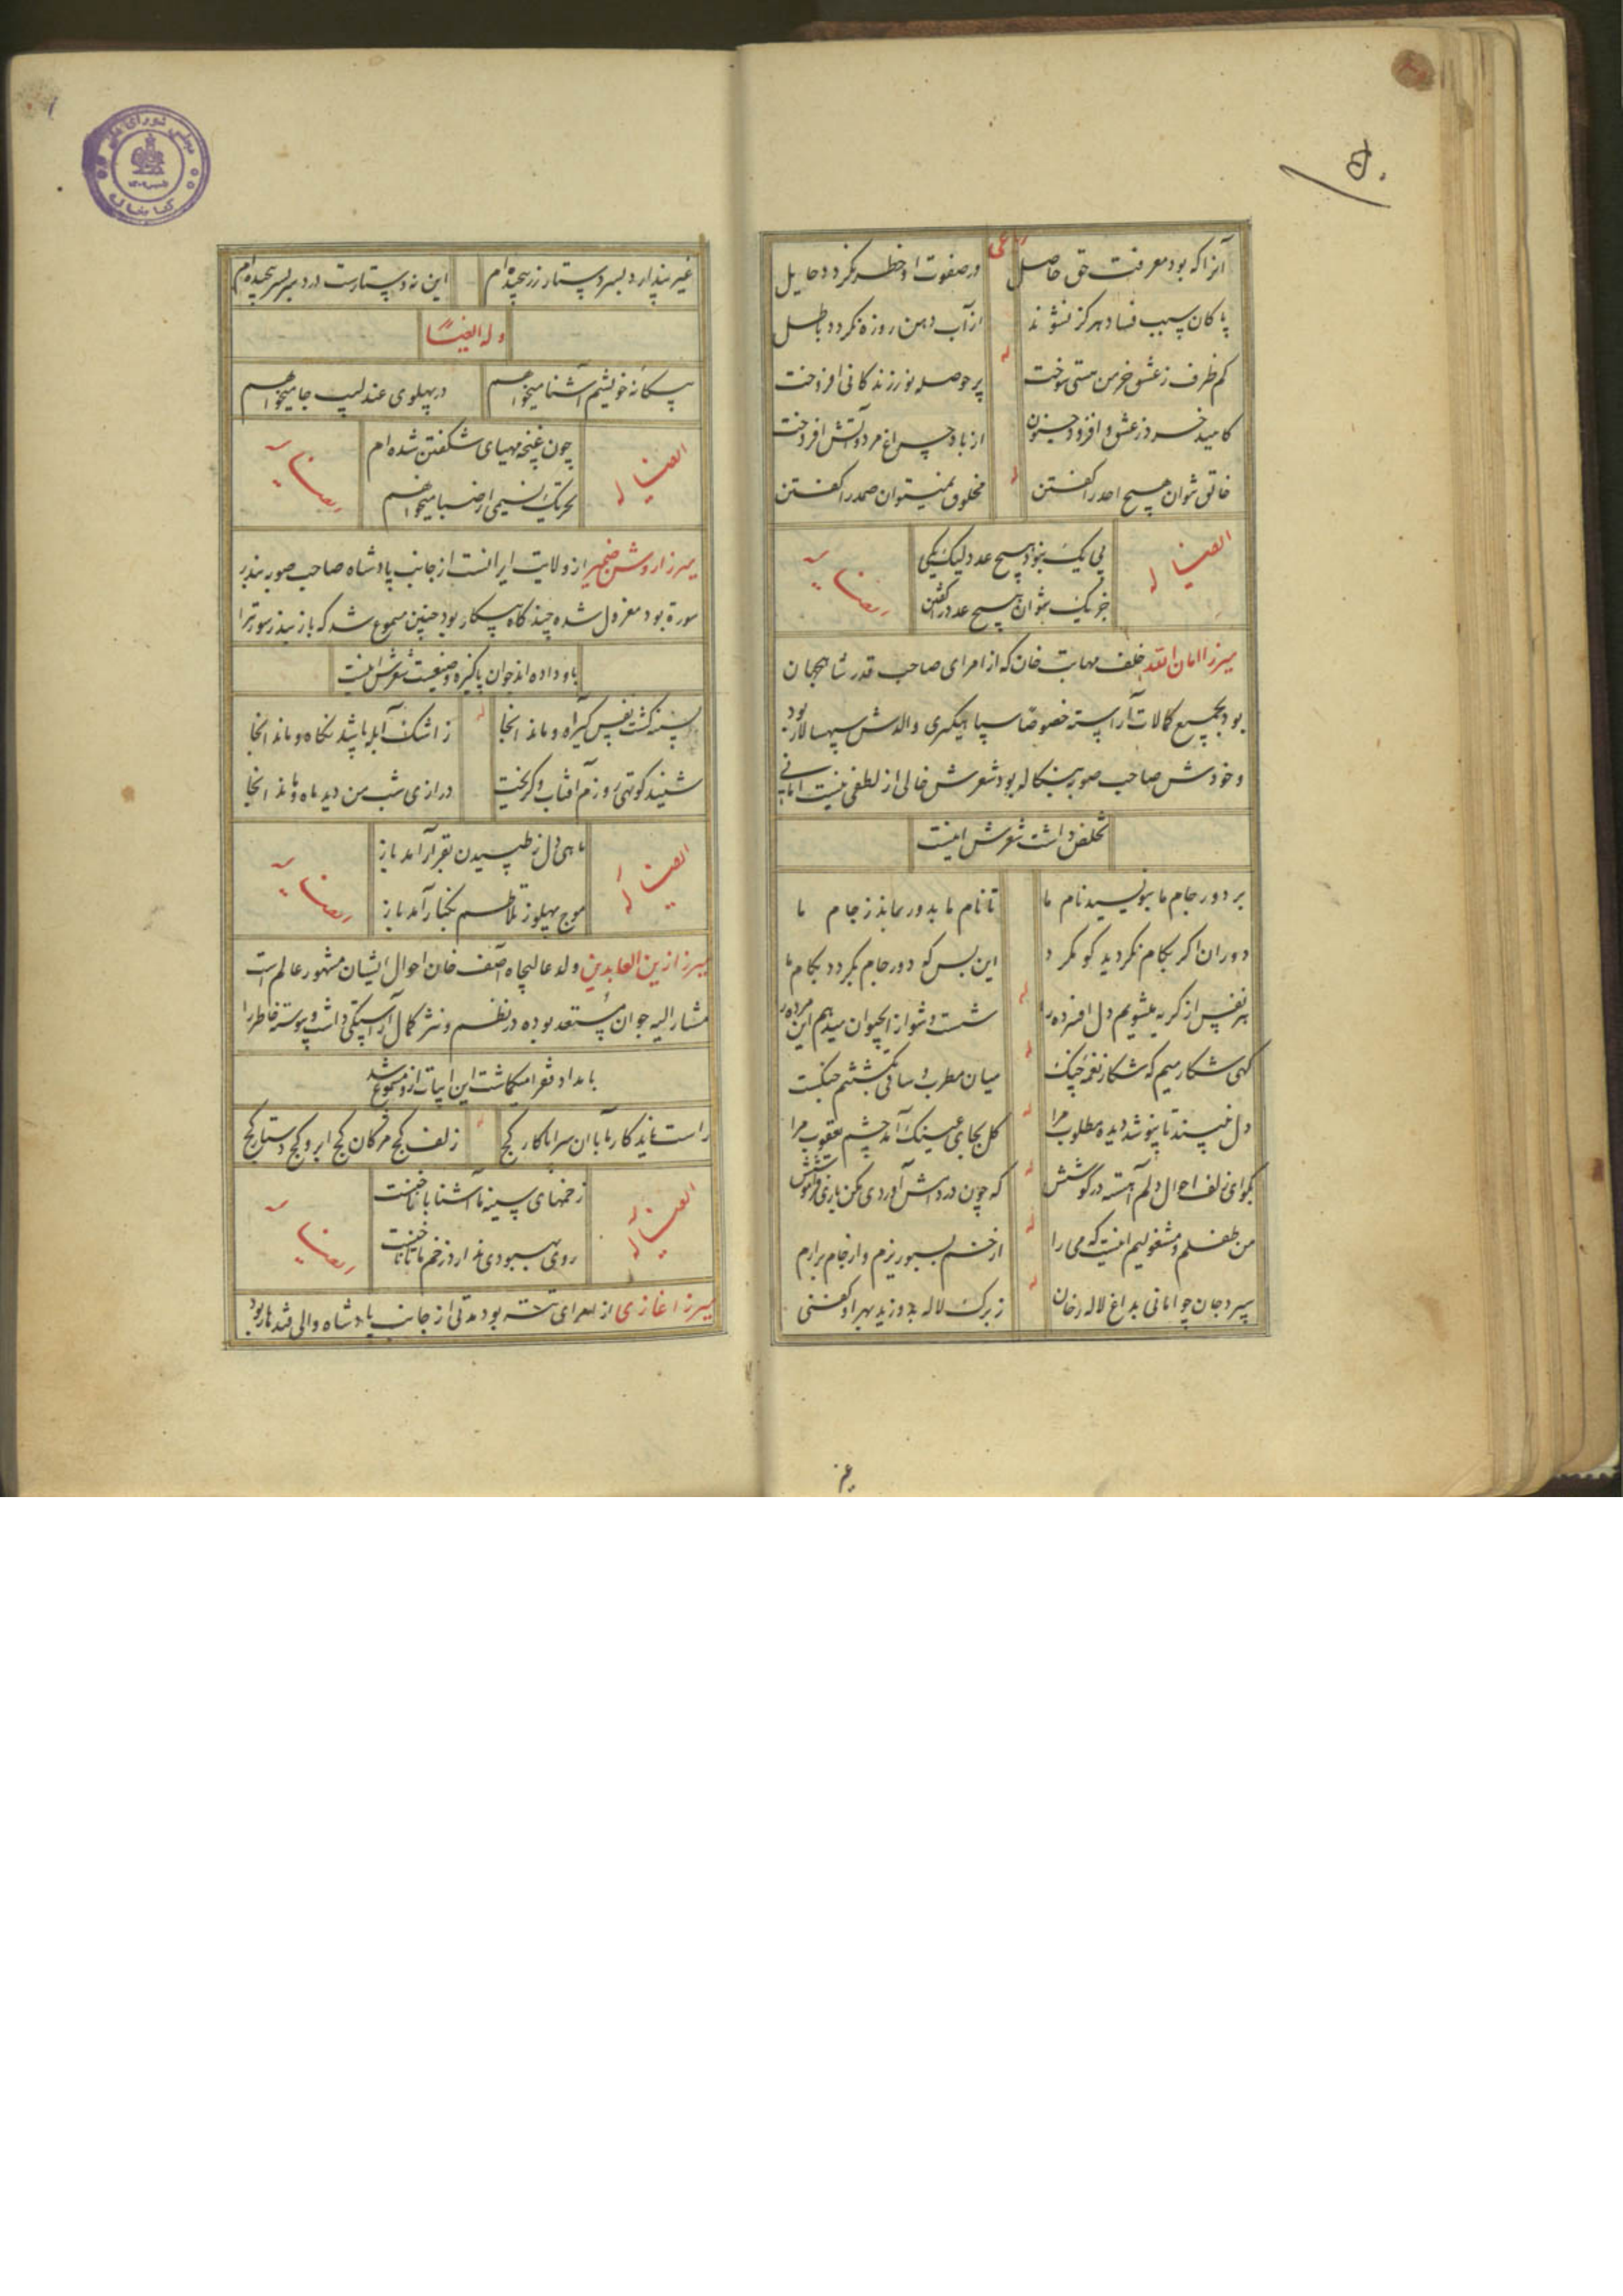 ۵۰
رباعی
آنرا که بود معرفت حق حاصل در صفوت او خطر نکردد حایل
پاکان بسبب فساد هرکز نشوند از آب دهن روزه نکردد باطل
له
کم ظرف ز عشق خرمن هستی سوخت پر حوصله نور زندکانی افروخت
کاهید خرد ز عشق و افزود جنون از باد چراغ مرد و آتش افروخت
له
خالق نتوان هیچ احد را کفتن مخلوق نمیتوان صمد را کفتن
ایضا له
بی یک نبود هیچ عدد لیک یکی
جز یک نتوان هیچ عدد را کفتن
ایضا له
میرزا امان الله خلف مهابت خان که از امرای صاحب قدر شاهجهان
بود بجمیع کمالات آراسته خصوصا سپاهیکری والدش سپهسالار بود
و خودش صاحب صوبه بنکاله بود شعرش خالی از لطفی نیست امانی
تخلص داشت شعرش اینست
بر دور جام ما بنویسید نام ما تا نام ما بدور بماند ز جام ما
دوران اکر بکام نکردید کو مکرد این بس که دور جام بکردد بکام ما
له
هر نفس از کریه میشویم دل افسرده را شست و شو از آبحیوان میدهم این مرده را
له
کهی شکار میم که شکار نغمه چنک میان مطرب و ساقی بکشتنم جنکست
له
دل نپسندد تا بپوشد دیده مطلوب مرا کل بجای عینک آمد چشم یعقوب مرا
له
بکو ای زلف احوال دلم آهسته در کوشش که چون در دامش آوردی مکن بازی فراموشش
له
من طفلم و مشغولیم اینست که می را از خم بسبو ریزم و از جام برارم
له
سپرد جان چو امانی بداغ لاله رخان ز برک لاله بدوزید بهر او کفنی
غیر
غیر پندارد بسر دستار زر پیچیده‌ام این نه دستارست درد سر بسر پیچیده‌ام
وله ایضًا
بیکانه خویشم آشنا میخواهم در پهلوی عندلیب جا میخواهم
ایضا له
چون غنچه مهیای شکفتن شده‌ام
تحریک نسیمی از صبا میخواهم
ایضا له
میرزا روشن ضمیر از ولایت ایرانست از جانب پادشاه صاحب صوبه بندر
سورة بود معزول شده چند کاه بیکار بود چنین مسموع شد که باز بندر سورتر ا
باو داده‌اند جوان پاکیزه وضعیست شعرش اینست
بسینه کشت نفس کیر آه و ماند انجا ز اشک آبله پا شد نکاه و ماند انجا
له
شنید کوتهی روزم آفتاب و کریخت درازی شب من دید ماه و ماند انجا
ایضا له
ماهی دل ز طپیدن بقرار آمد باز
موج پهلو ز تلاطم بکنار آمد باز
ایضا له
میرزا زین العابدین ولد عالیجاه آصف خان احوال ایشان مشهور عالم است
مشارالیه جوان مستعد بوده در نظم و نثر کمال آراستکی داشت و پیوسته خاطر را
بامداد فقرا میکماشت این ابیات از و مسموع شد
راست ناید کار ما با ان سراپا کار کج زلف کج مژکان کج ابرو کج و دستار کج
له
ایضا له
زخمهای سینه ما آشنا با ناخنست
روی بهبودی ندارد زخم ما تا ناخنست
ایضا له
میرزا غازی از امرای تته بود مدتی از جانب پادشاه والی قندهار بود
مجلس شورای ملی
کتابخانه